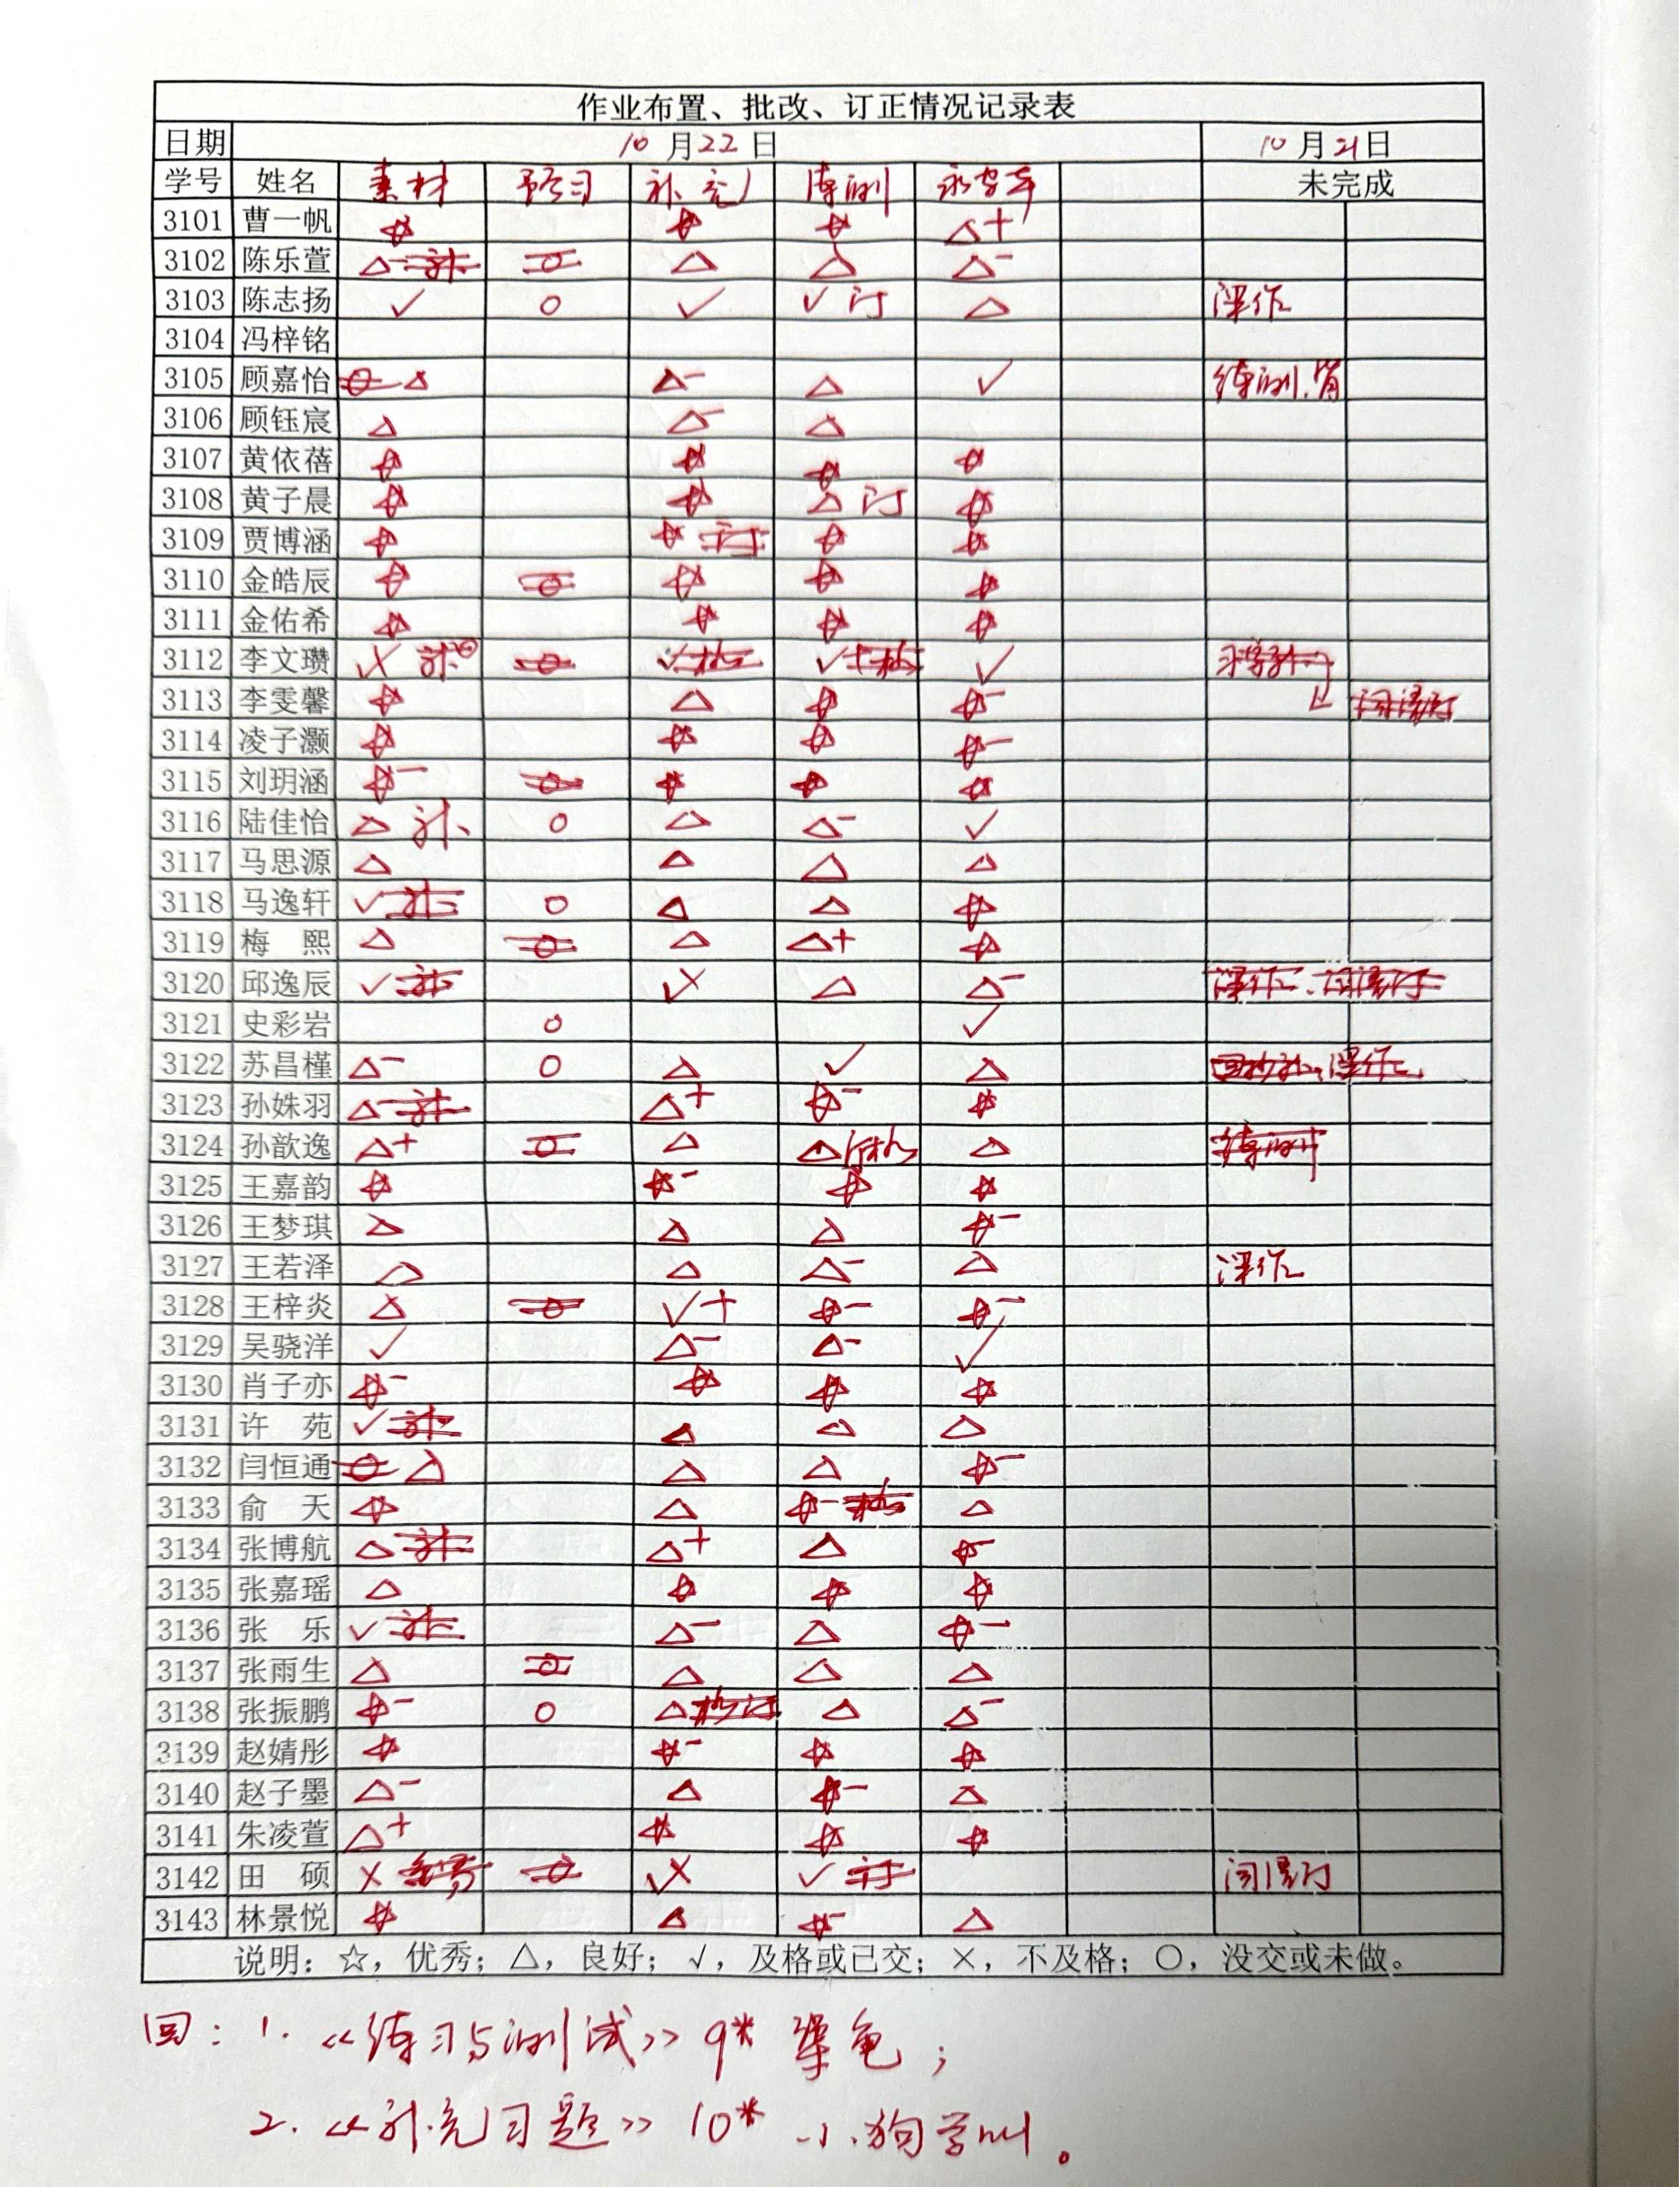 作业布置、批改、订正情况记录表
日期 10月22日 10月21日
学号 姓名 素材 预习 补充 练测 未完成
3101 曹一帆 ☆ ☆ ☆ △+
3102 陈乐萱 △- 补 ○ △ △ △-
3103 陈志扬 √ ○ √ √订 △ 课作
3104 冯梓铭
3105 顾嘉怡 ○ △ △- △ √ 练测.
3106 顾钰宸 △ △- △
3107 黄依蓓 ☆ ☆ ☆ ☆
3108 黄子晨 ☆ ☆ △订 ☆
3109 贾博涵 ☆ ☆ 订 ☆ ☆
3110 金皓辰 ☆ ○ ☆ ☆ ☆
3111 金佑希 ☆ ☆ ☆ ☆
3112 李文瓒 ○ √
3113 李雯馨 ☆ △ ☆ ☆-
3114 凌子灏 ☆ ☆ ☆ ☆-
3115 刘玥涵 ☆- ○ ☆ ☆ ☆
3116 陆佳怡 △ 补 ○ △ △- √
3117 马思源 △ △ △ △
3118 马逸轩 √补 ○ △ △ ☆
3119 梅 熙 △ ○ △ △+ ☆
3120 邱逸辰 √补 △ △-
3121 史彩岩 ○ √
3122 苏昌槿 △- ○ △ √ △ 课作
3123 孙姝羽 △- 补 △+ ☆- ☆
3124 孙歆逸 △+ ○ △ △ △ 练测
3125 王嘉韵 ☆ ☆- ☆ ☆
3126 王梦琪 △ △ △ ☆-
3127 王若泽 △ △ △- △ 课作
3128 王梓炎 △ ○ √+ ☆- ☆-
3129 吴骁洋 √ △- △- √
3130 肖子亦 ☆- ☆ ☆ ☆
3131 许 苑 √补 △ △ △
3132 闫恒通 ○ △ △ △ ☆-
3133 俞 天 ☆ △ ☆- △
3134 张博航 △补 △+ △ ☆-
3135 张嘉瑶 △ ☆ ☆ ☆
3136 张 乐 √补 △- △ ☆-
3137 张雨生 △ ○ △ △ △
3138 张振鹏 ☆- ○ △ △ △-
3139 赵婧彤 ☆ ☆- ☆ ☆
3140 赵子墨 △- △ ☆- △
3141 朱凌萱 △+ ☆ ☆ ☆
3142 田 硕 × ○ √订
3143 林景悦 ☆ △ ☆- △
说明：☆，优秀；△，良好；√，及格或已交；×，不及格；○，没交或未做。
回：1.《练习与测试》9* 犟龟；
2.《补充习题》10* 小狗学叫。